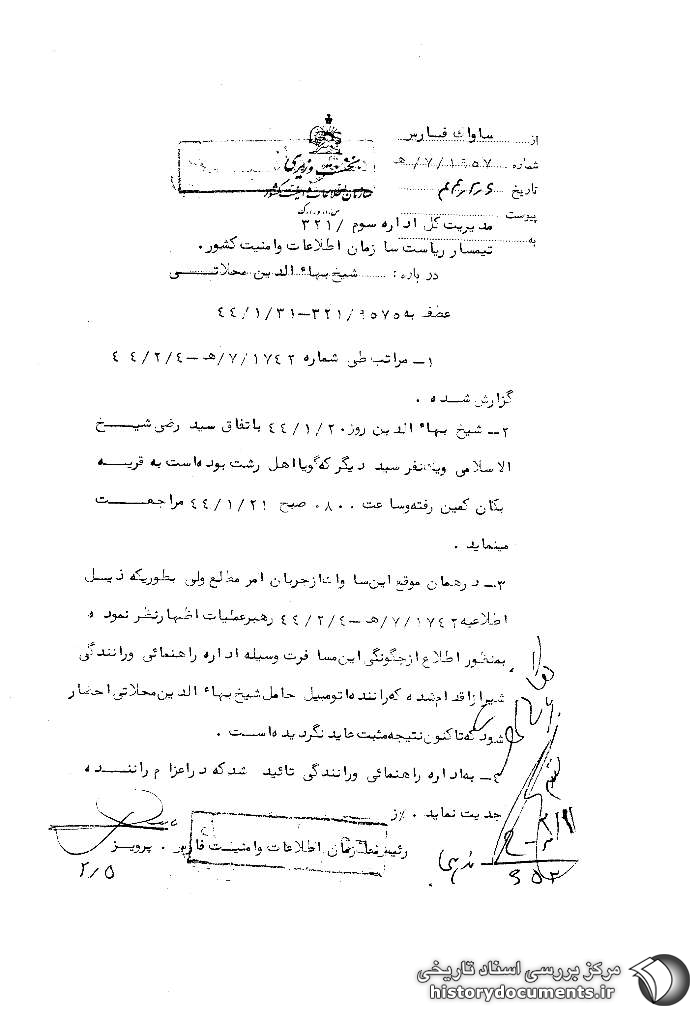 نخست وزیری
سازمان اطلاعات و امنیت کشور
س.ا.و.ا.ک
از ساواک فارس
شماره ۷/۱۹۵۷/هـ
تاریخ
پیوست
به مدیریت کل اداره سوم /۳۲۱
تیمسار ریاست سازمان اطلاعات وامنیت کشور.
درباره: شیخ بهاء الدین محلاتی
عطف به ۳۲۱/۹۵۷۵-۴۴/۱/۳۱
۱- مراتب طی شماره ۷/۱۷۴۲/هـ-۴۴/۲/۴
گزارش شده .
۲- شیخ بهاء الدین روز ۴۴/۱/۲۰ باتفاق سید رضی شیخ
الاسلامی ویک نفر سید دیگر که گویا اهل رشت بوده است به قریه
بکان کمین رفته وساعت ۰۸۰۰ صبح ۴۴/۱/۲۱ مراجعت
مینماید .
۳- درهمان موقع این ساواک از جریان امر مطلع ولی بطوریکه ذیل
اطلاعیه ۷/۱۷۴۲/هـ-۴۴/۲/۴ رهبر عملیات اظهار نظر نموده
بمنظور اطلاع از چگونگی این مسافرت وسیله اداره راهنمائی ورانندگی
شیراز اقدام شده که راننده اتومبیل حامل شیخ بهاء الدین محلاتی احضار
شود که تاکنون نتیجه مثبت عاید نگردیده است .
۴- به اداره راهنمائی ورانندگی تائید شد که در اعزام راننده
جدیت نماید . /ز
رئیس سازمان اطلاعات وامنیت فارس . پرویز
۲/۵
مرکز بررسی اسناد تاریخی
historydocuments.ir